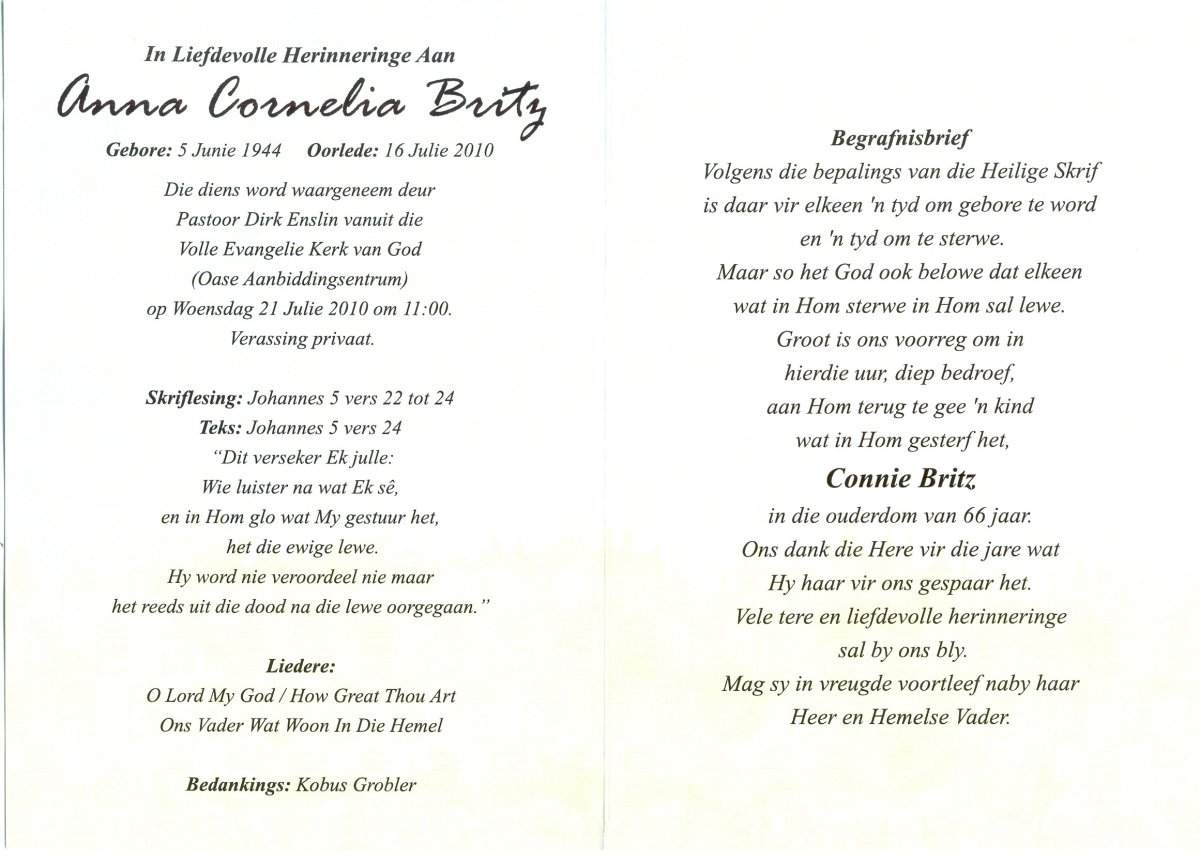 In Liefdevolle Herinneringe Aan
Anna Cornelia Britz
Gebore: 5 Junie 1944 Oorlede: 16 Julie 2010
Die diens word waargeneem deur
Pastoor Dirk Enslin vanuit die
Volle Evangelie Kerk van God
(Oase Aanbiddingsentrum)
op Woensdag 21 Julie 2010 om 11:00.
Verassing privaat.
Skriflesing: Johannes 5 vers 22 tot 24
Teks: Johannes 5 vers 24
“Dit verseker Ek julle:
Wie luister na wat Ek sê,
en in Hom glo wat My gestuur het,
het die ewige lewe.
Hy word nie veroordeel nie maar
het reeds uit die dood na die lewe oorgegaan.”
Liedere:
O Lord My God / How Great Thou Art
Ons Vader Wat Woon In Die Hemel
Bedankings: Kobus Grobler
Begrafnisbrief
Volgens die bepalings van die Heilige Skrif
is daar vir elkeen 'n tyd om gebore te word
en 'n tyd om te sterwe.
Maar so het God ook belowe dat elkeen
wat in Hom sterwe in Hom sal lewe.
Groot is ons voorreg om in
hierdie uur, diep bedroef,
aan Hom terug te gee 'n kind
wat in Hom gesterf het,
Connie Britz
in die ouderdom van 66 jaar.
Ons dank die Here vir die jare wat
Hy haar vir ons gespaar het.
Vele tere en liefdevolle herinneringe
sal by ons bly.
Mag sy in vreugde voortleef naby haar
Heer en Hemelse Vader.